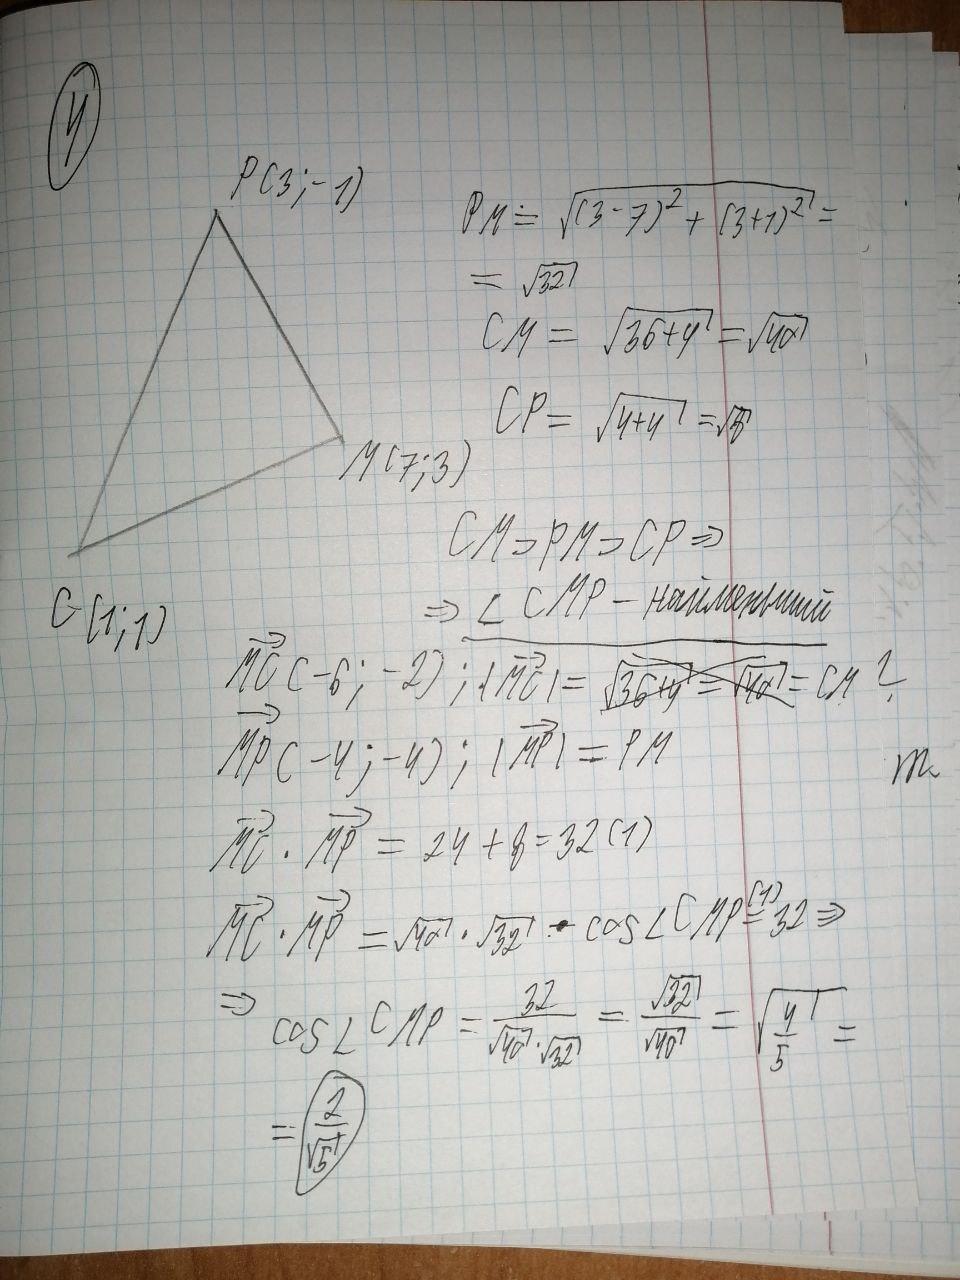 4
P(3;-1)
PM = √((3-7)² + (3+1)²) =
= √32
CM = √(36+4) = √40
CP = √(4+4) = √8
M(7;3)
CM > PM > CP ⇒
C(1;1)
⇒ ∠CMP - наименьший
MC(-6;-2); |MC| = √(36+4) = √40 = CM
MP(-4;-4); |MP| = PM
MC · MP = 24 + 8 = 32 (1)
MC · MP = √40 · √32 · cos∠CMP =(1) 32 ⇒
⇒ cos∠CMP = 32/(√40·√32) = √32/√40 = √(4/5) =
= 2/√5